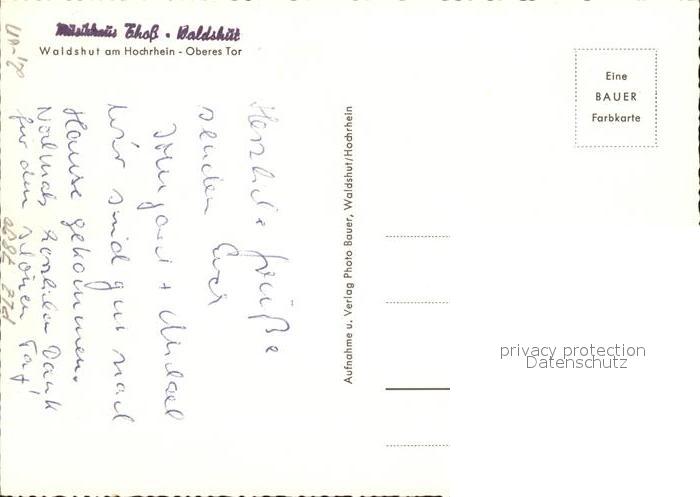 Musikhaus Thoß · Waldshut
Waldshut am Hochrhein - Oberes Tor
Herzliche Grüße
senden Euch
Irmgard + Michael
Wir sind gut nach
Hause gekommen.
Nochmals herzlichen Dank
für den schönen Tag!
Aufnahme u. Verlag Photo Bauer, Waldshut/Hochrhein
Eine
BAUER
Farbkarte
privacy protection
Datenschutz